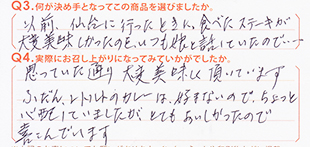 Q3. 何が決め手となってこの商品を選びましたか。
以前、仙台に行ったときに、食べたステーキが
大変美味しかったのを、いつも娘と話していたので…
Q4. 実際にお召し上がりになってみていかがでしたか。
思っていた通り 大変美味しく頂いています
ふだん、レトルトのカレーは、好まないので、ちょっと
心配していましたが とてもおいしかったので
喜こんでいます